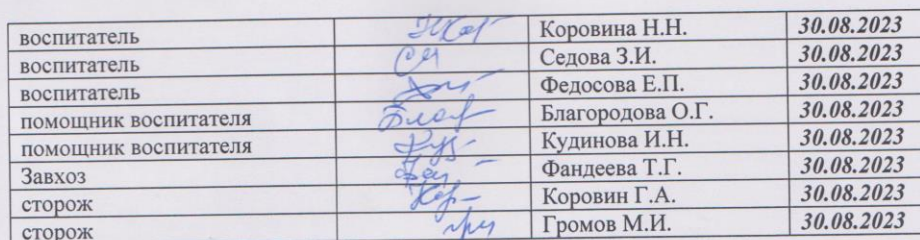 воспитатель Коровина Н.Н. 30.08.2023
воспитатель Седова З.И. 30.08.2023
воспитатель Федосова Е.П. 30.08.2023
помощник воспитателя Благородова О.Г. 30.08.2023
помощник воспитателя Кудинова И.Н. 30.08.2023
Завхоз Фандеева Т.Г. 30.08.2023
сторож Коровин Г.А. 30.08.2023
сторож Громов М.И. 30.08.2023